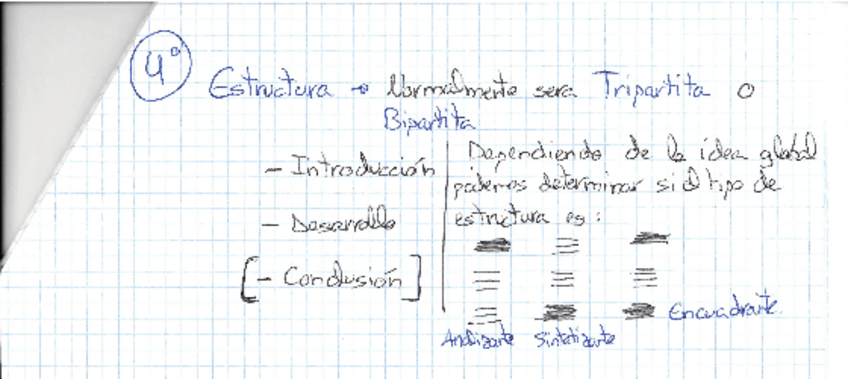 4º
Estructura → Normalmente sera Tripartita o
Bipartita
- Introducción
- Desarrollo
[- Conclusión]
Dependiendo de la idea global
podemos determinar si el tipo de
estructura es:
Analizante Sintetizante Encuadrante.